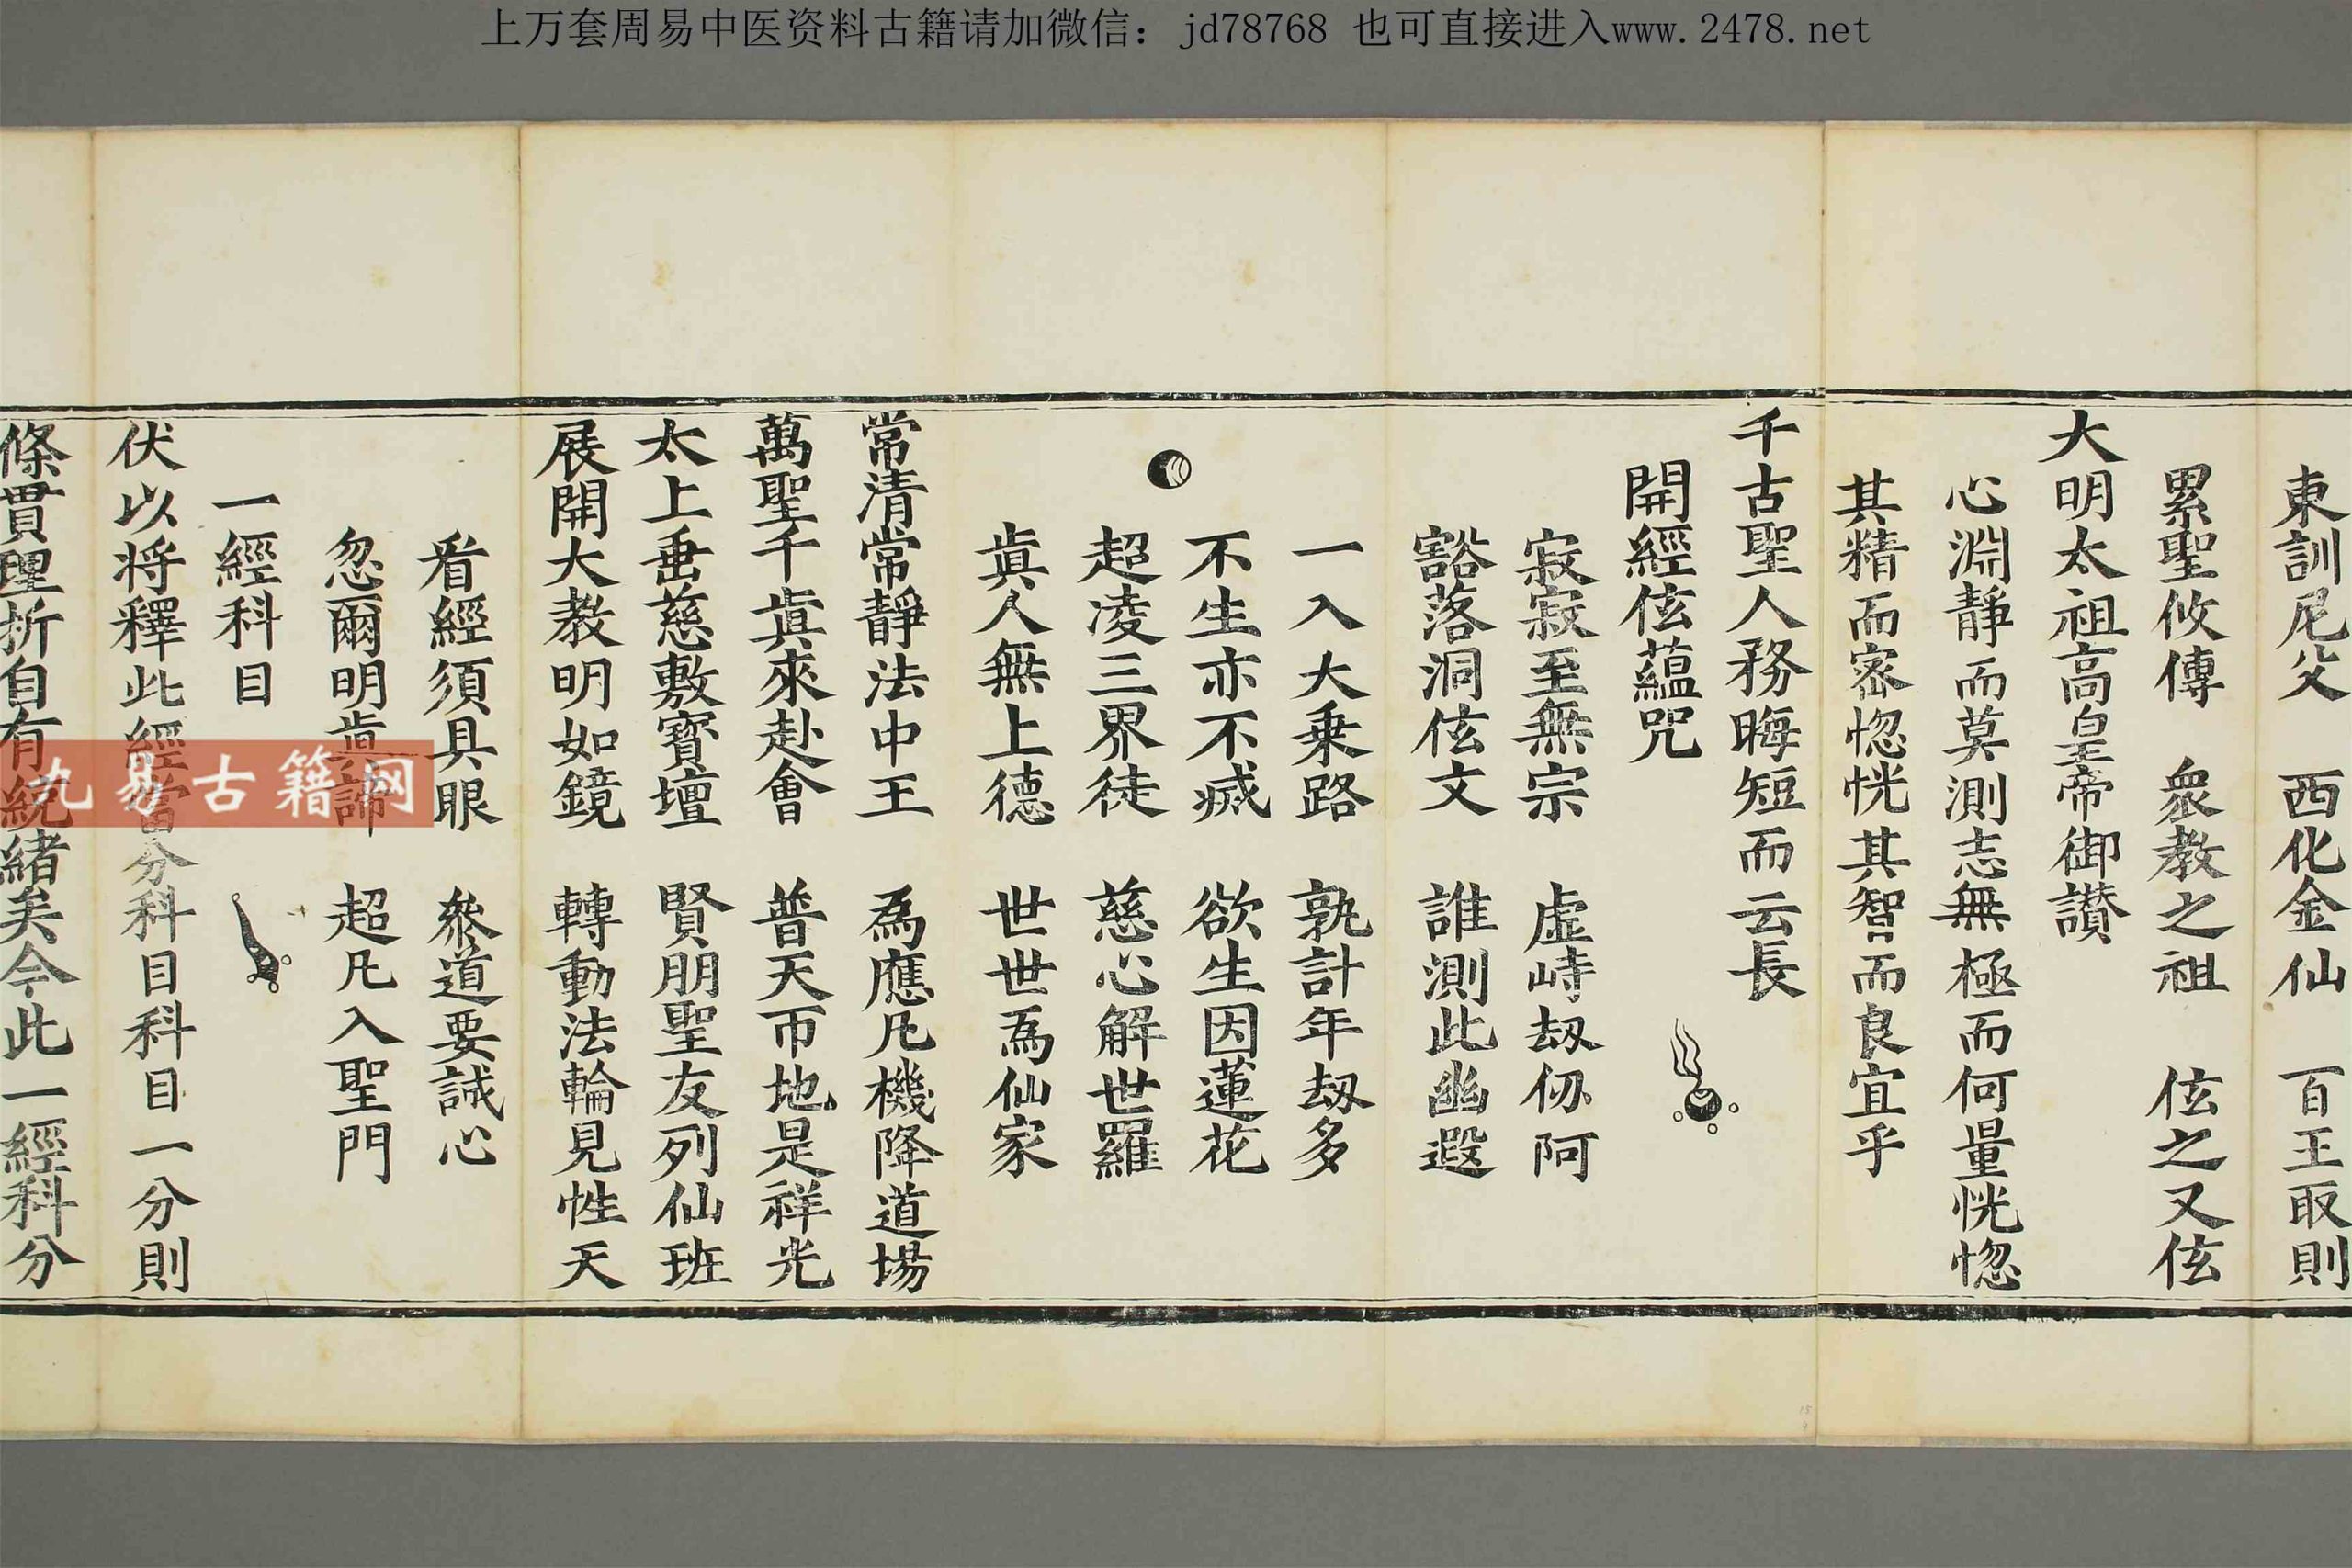 上万套周易中医资料古籍请加微信：jd78768 也可直接进入www.2478.net
東訓尼父　西化金仙　百王取則
累聖攸傳　衆教之祖　伭之又伭
大明太祖高皇帝御讃
心淵靜而莫測志無極而何量恍惚
其精而密惚恍其智而良宜乎
千古聖人務晦短而云長
開經伭蘊咒
寂寂至無宗　虛峙刼仞阿
豁落洞伭文　誰測此幽遐
一入大乗路　孰計年刼多
不生亦不滅　欲生因蓮花
超凌三界徒　慈心解世羅
眞人無上德　世世爲仙家
常清常靜法中王　爲應凡機降道場
萬聖千眞來赴會　普天帀地是祥光
太上垂慈敷寳壇　賢朋聖友列仙班
展開大教明如鏡　轉動法輪見性天
看經須具眼　叅道要誠心
忽爾明眞諦　超凡入聖門
一經科目
伏以将釋此經當分科目科目一分則
條貫理折自有統緒矣今此一經科分
九易古籍网